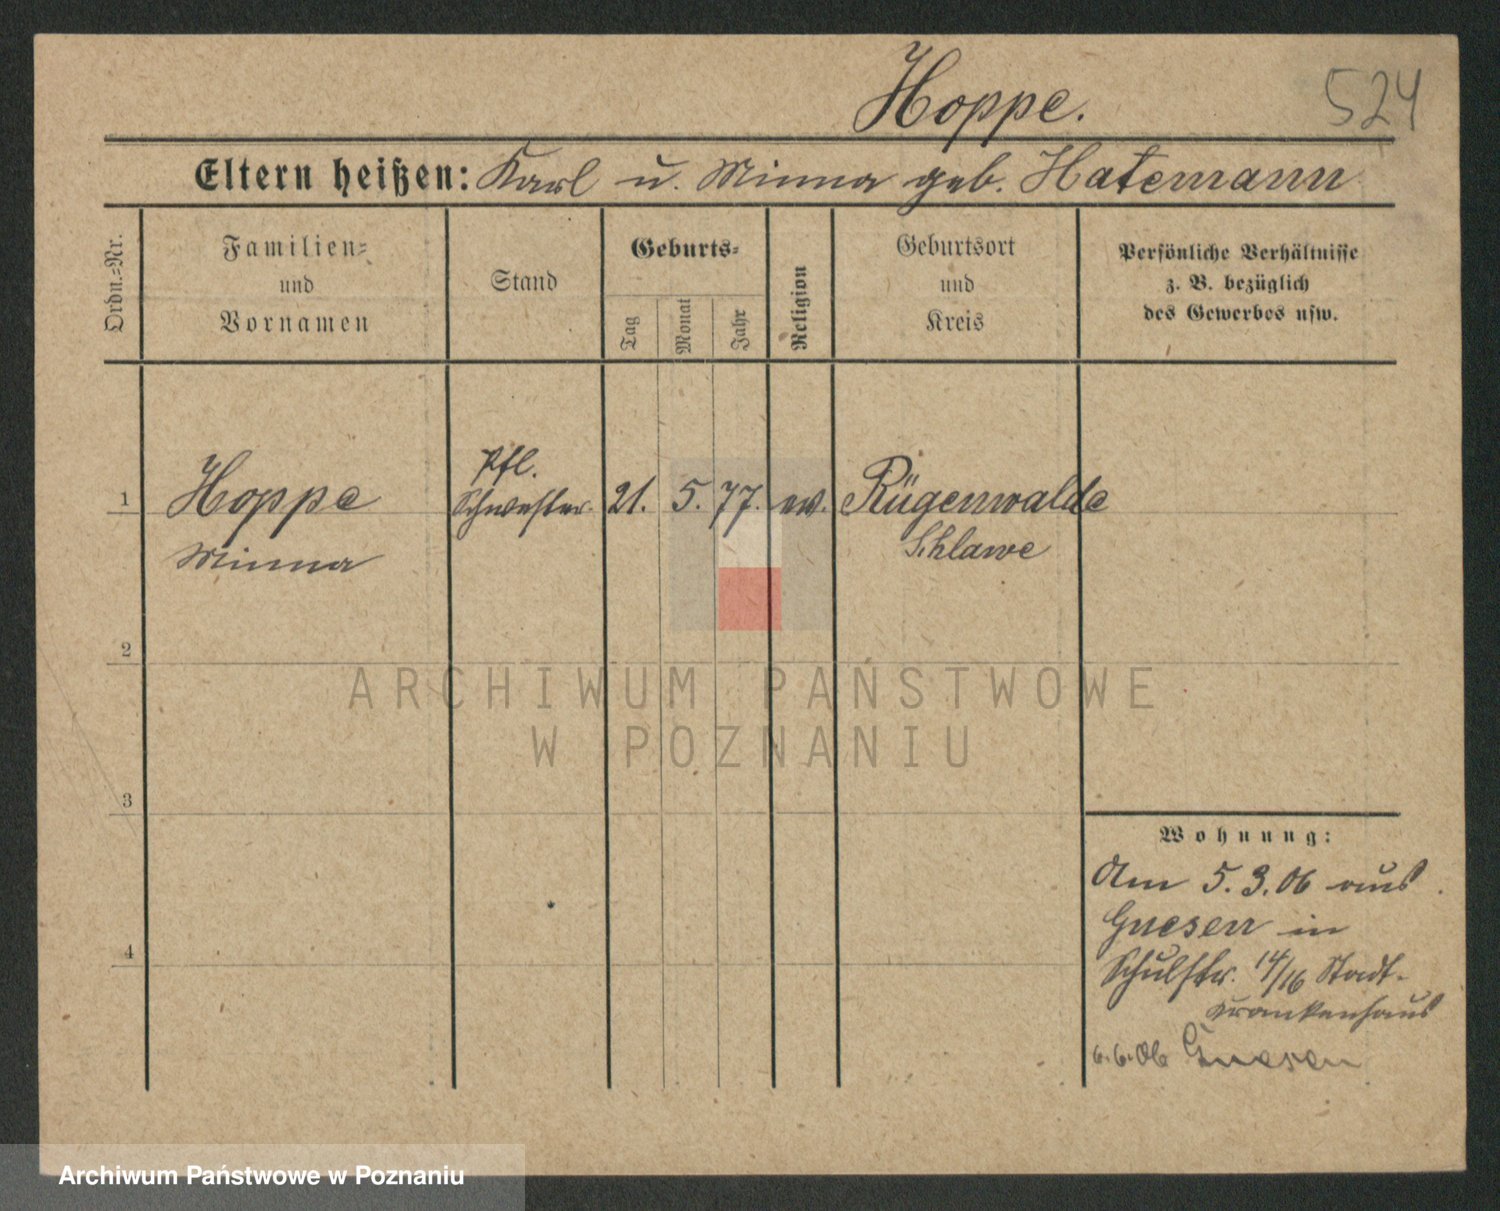 Hoppe.
524
Eltern heißen: Karl u. Minna geb. Hatemann
Ordn.-Nr.
Familien-
und
Vornamen
Stand
Geburts-
Tag
Monat
Jahr
Religion
Geburtsort
und
Kreis
Persönliche Verhältnisse
z. B. bezüglich
des Gewerbes usw.
Pfl.
1 Hoppe Schwester. 21. 5. 77. ev. Rügenwalde
Minna Schlawe
2
ARCHIWUM PAŃSTWOWE
W POZNANIU
3
Wohnung:
Am 5.3.06 aus
Gnesen in
4
Schulstr. 14/16 Stadt-
krankenhaus
6.6.06 Gnesen
Archiwum Państwowe w Poznaniu